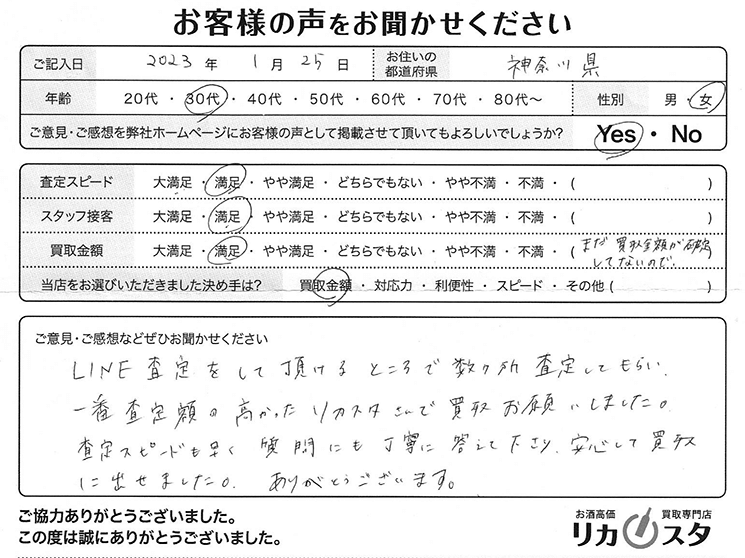 お客様の声をお聞かせください
ご記入日 2023 年 1 月 25 日 お住いの都道府県 神奈川県
年齢 20代 ・ 30代 ・ 40代 ・ 50代 ・ 60代 ・ 70代 ・ 80代〜 性別 男 ・ 女
ご意見・ご感想を弊社ホームページにお客様の声として掲載させて頂いてもよろしいでしょうか? Yes ・ No
査定スピード 大満足 ・ 満足 ・ やや満足 ・ どちらでもない ・ やや不満 ・ 不満 ・ ( )
スタッフ接客 大満足 ・ 満足 ・ やや満足 ・ どちらでもない ・ やや不満 ・ 不満 ・ ( )
買取金額 大満足 ・ 満足 ・ やや満足 ・ どちらでもない ・ やや不満 ・ 不満 ・ ( まだ買取金額が確定してないので. )
当店をお選びいただきました決め手は? 買取金額 ・ 対応力 ・ 利便性 ・ スピード ・ その他 ( )
ご意見・ご感想などぜひお聞かせください
LINE査定をして頂けるところで数ヶ所査定してもらい、
一番査定額の高かったリカスタさんで買取お願いしました。
査定スピードも早く質問にも丁寧に答えて下さり、安心して買取
に出せました。ありがとうございます。
ご協力ありがとうございました。
この度は誠にありがとうございました。
お酒高価 買取専門店
リカスタ